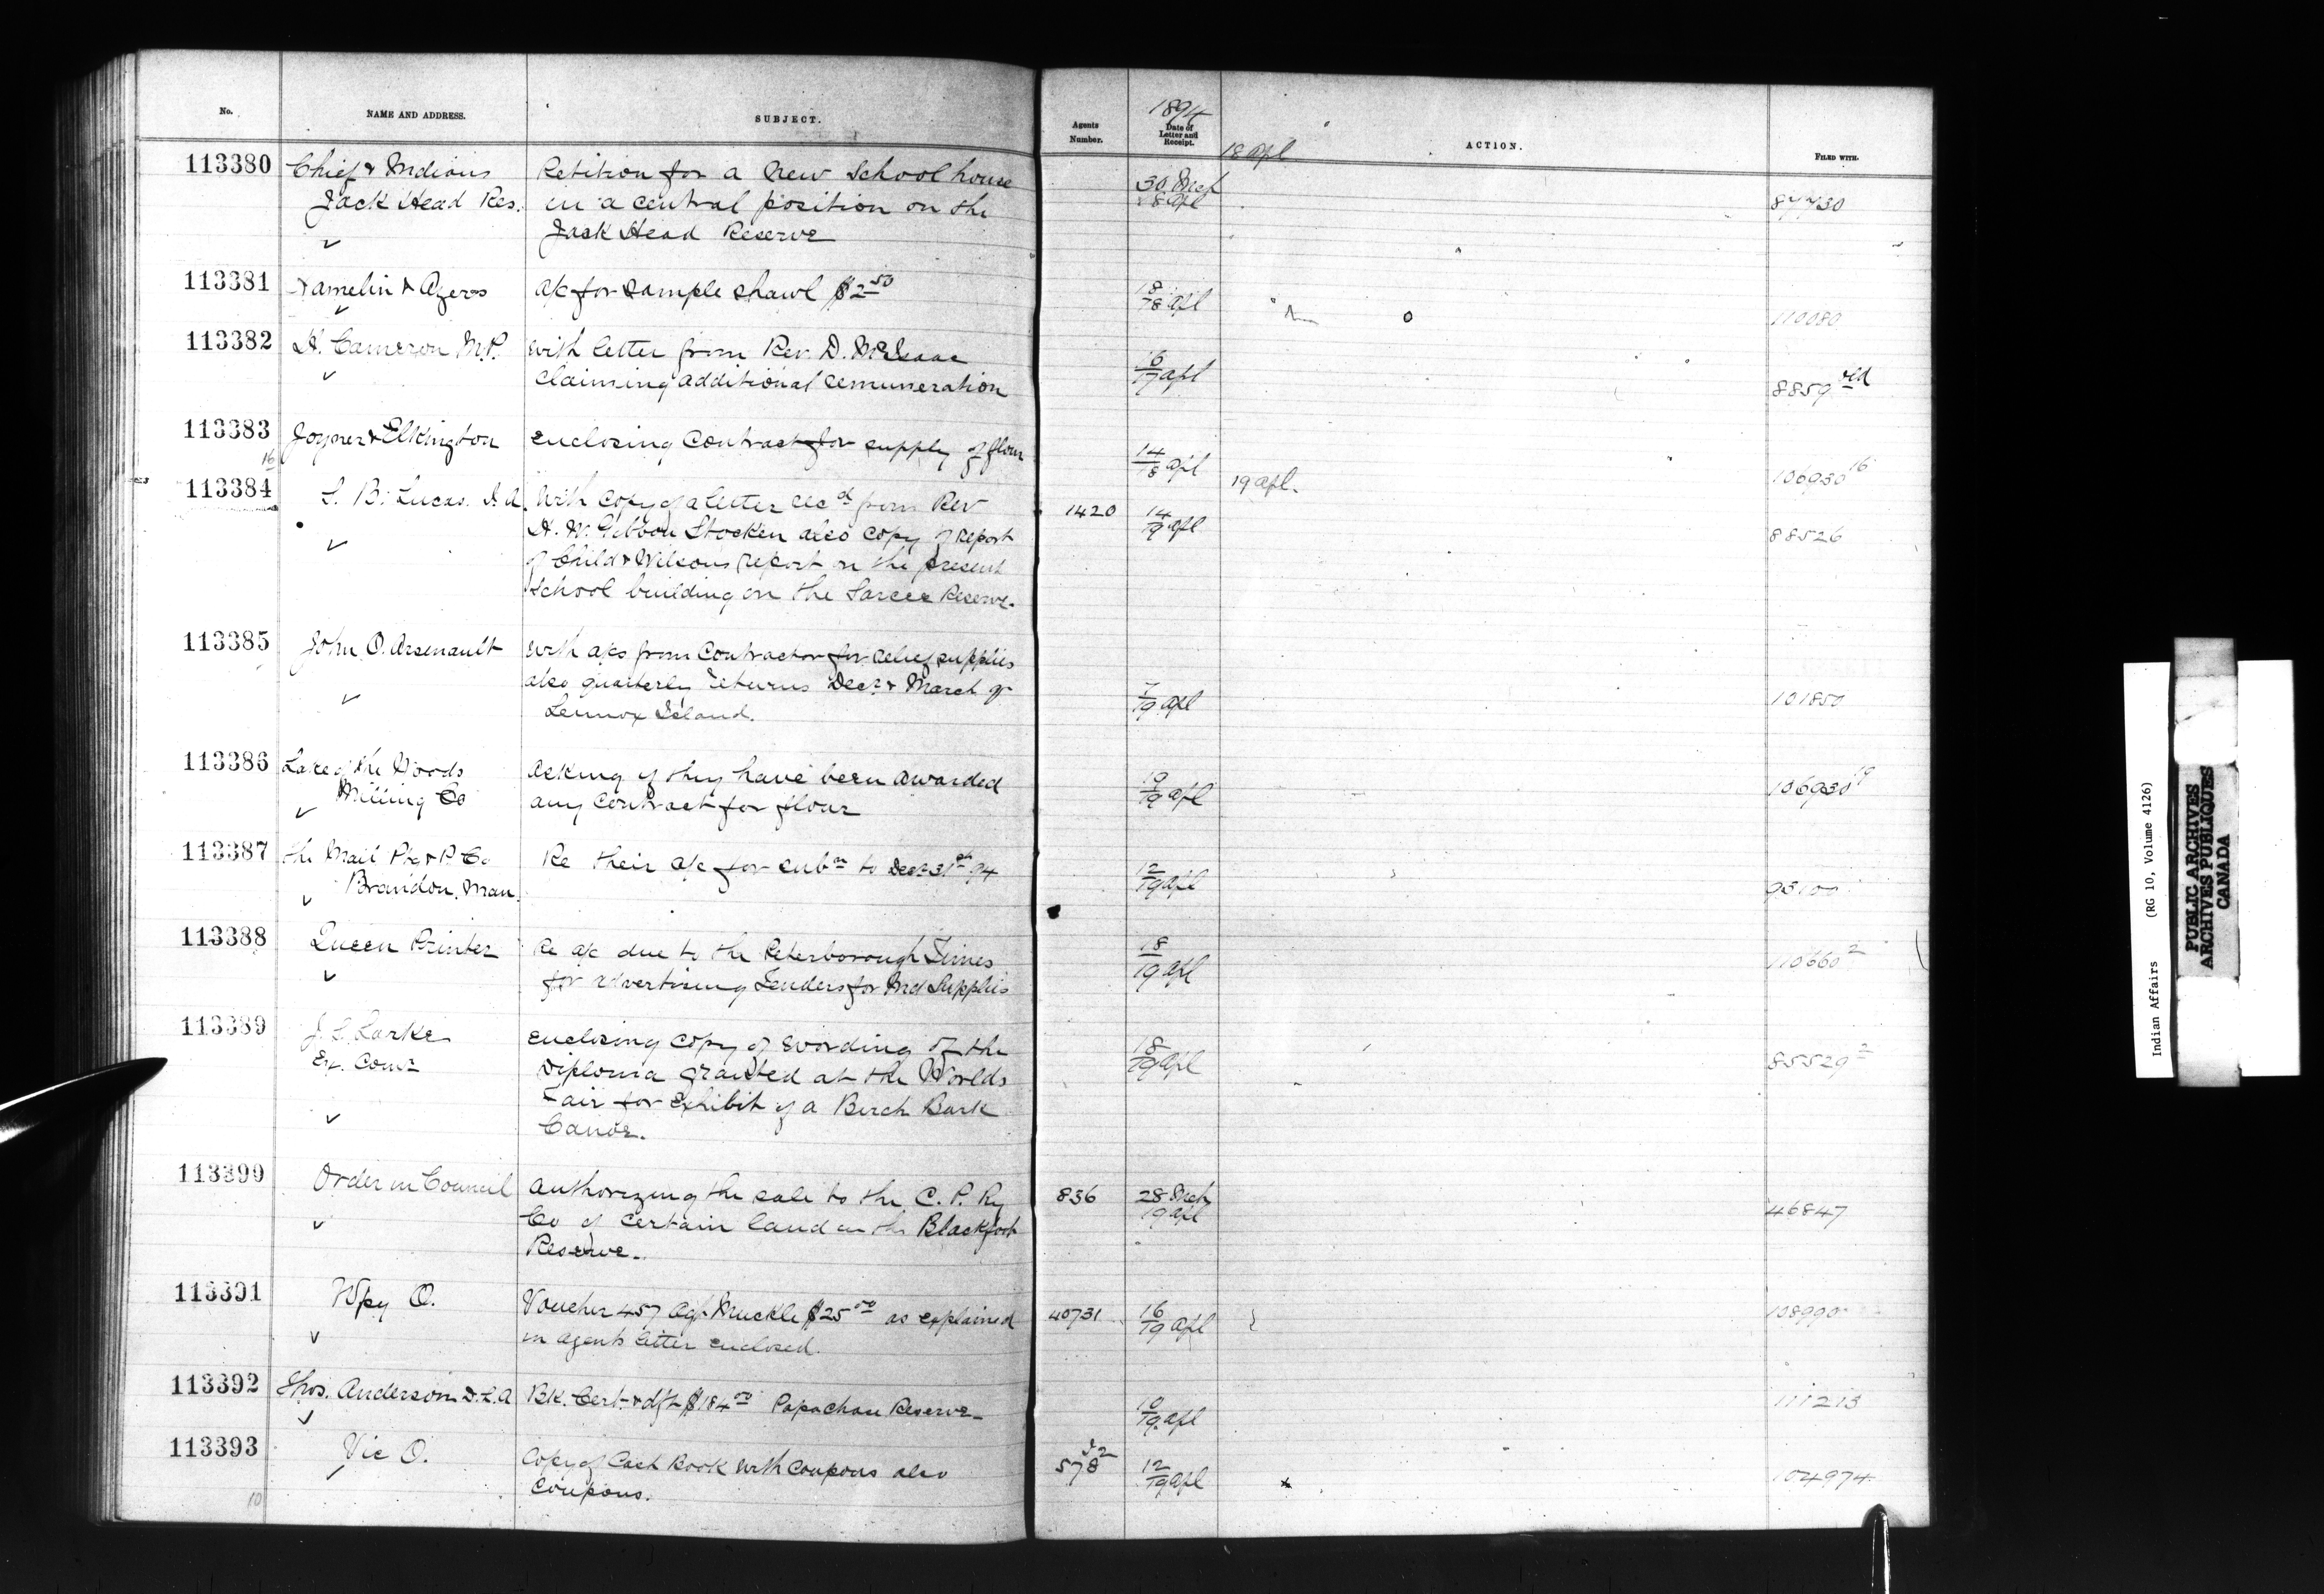 No.
NAME AND ADDRESS.
SUBJECT.
Agents Number.
1894
Date of Letter and Receipt.
18 Apl
ACTION.
FILED WITH.
113380
Chief & Indians
Jack Head Res.
Petition for a New School house
in a central position on the
Jack Head Reserve
30 Mch
18 Apl
87730
113381
Hamelin & Ayers
a/c for sample shawl $2.50
18/18 Apl
110080
113382
H. Cameron M.P.
With letter from Rev. D. McIsaac
claiming additional remuneration
16/17 Apl
8859 old
113383
Joyner & Elkington
Enclosing Contract for supply of flour
14/18 Apl
106930 16
16
113384
S. B. Lucas. I. A.
With copy of a letter recd from Rev
H. W. Gibbon Stocken also copy of report
of Child & Wilsons report on the present
School building on the Sarcee Reserve.
1420
14/19 Apl
19 Apl.
88526
113385
John O. Arsenault
With a/cs from Contractor for relief supplies
also quarterly returns Decr & March of
Lennox Island.
7/19 Apl
101850
113386
Lake of the Woods
Milling Co
Asking if they have been awarded
any contract for flour
10/19 Apl
106930 19
113387
The Mail Ptg & P. Co
Brandon, Man.
Re their a/c for subn to Decr 31st 94
12/19 Apl
113388
Queen Printer
Re a/c due to the Peterborough Times
for advertising Tenders for Ind Supplies
18/19 Apl
110660 2
113389
J. S. Larke
Ex. Comr
Enclosing copy of wording of the
Diploma granted at the Worlds
Fair for Exhibit of a Birch Bark
Canoe.
18/19 Apl
85529 2
113390
Order in Council
Authorizing the sale to the C. P. Ry
Co of certain land on the Blackfoot
Reserve.
836
28 Mch
19 Apl
46847
113391
Wpg O.
Voucher 457 Agt. Muckle $25.00 as explained
in agents letter enclosed.
40731
16/19 Apl
108990
113392
Thos. Anderson D.L.A
Bk. Cert. & dft $184.00 Papachau Reserve
10/19 Apl
111213
113393
Vic O.
Copy of Cash Book with coupons also
coupons.
578
12/19 Apl
104974
10
Indian Affairs (RG 10, Volume 4126)
PUBLIC ARCHIVES
ARCHIVES PUBLIQUES
CANADA